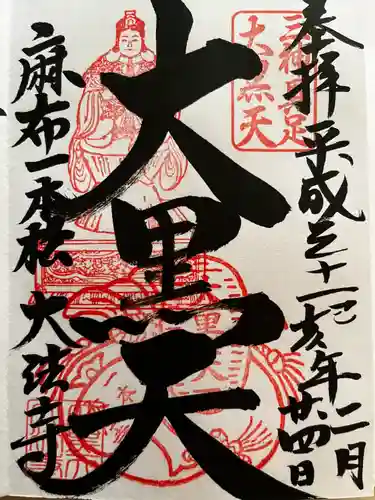 奉拝
平成三十一己亥年二月
廿四日
三神具足
大黒天
大黒天
麻布一本松
大法寺